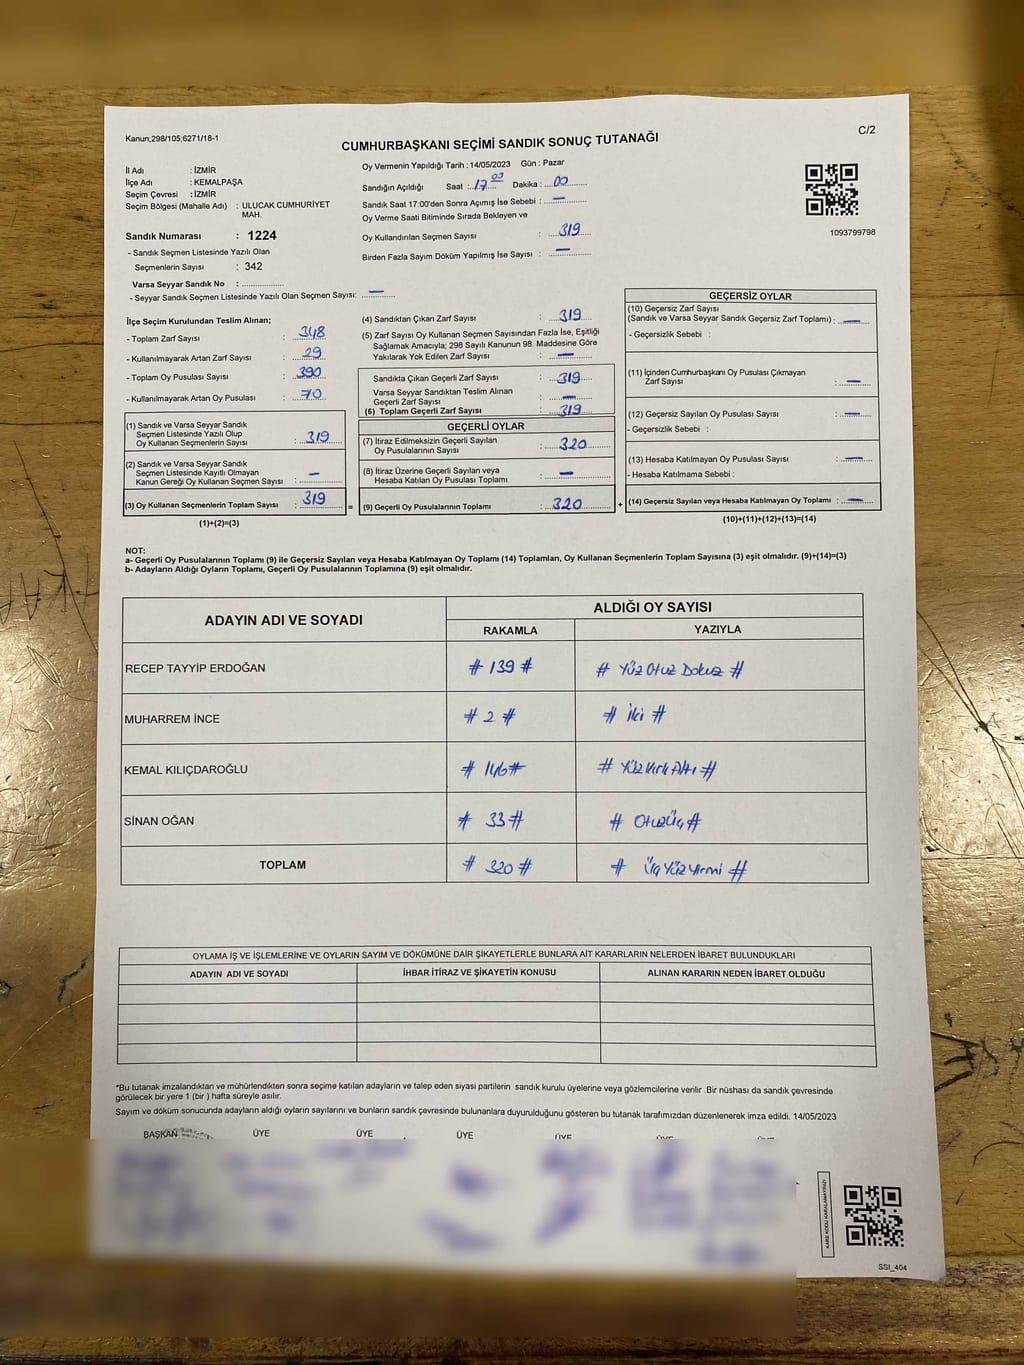 Kanun;298/105;6271/18-1
C/2
CUMHURBAŞKANI SEÇİMİ SANDIK SONUÇ TUTANAĞI
İl Adı : İZMİR
İlçe Adı : KEMALPAŞA
Seçim Çevresi : İZMİR
Seçim Bölgesi (Mahalle Adı) : ULUCAK CUMHURİYET
MAH.
Sandık Numarası : 1224
- Sandık Seçmen Listesinde Yazılı Olan
Seçmenlerin Sayısı : 342
Varsa Seyyar Sandık No :
- Seyyar Sandık Seçmen Listesinde Yazılı Olan Seçmen Sayısı: —
Oy Vermenin Yapıldığı Tarih : 14/05/2023 Gün : Pazar
Sandığın Açıldığı Saat : 17 00 Dakika : 00
Sandık Saat 17:00'den Sonra Açımış İse Sebebi : —
Oy Verme Saati Bitiminde Sırada Bekleyen ve
Oy Kullandırılan Seçmen Sayısı : 319
Birden Fazla Sayım Döküm Yapılmış İse Sayısı : —
1093799798
İlçe Seçim Kurulundan Teslim Alınan;
- Toplam Zarf Sayısı : 348
- Kullanılmayarak Artan Zarf Sayısı : 29
- Toplam Oy Pusulası Sayısı : 390
- Kullanılmayarak Artan Oy Pusulası : 70
(1) Sandık ve Varsa Seyyar Sandık
Seçmen Listesinde Yazılı Olup
Oy Kullanan Seçmenlerin Sayısı : 319
(2) Sandık ve Varsa Seyyar Sandık
Seçmen Listesinde Kayıtlı Olmayan
Kanun Gereği Oy Kullanan Seçmen Sayısı : —
(3) Oy Kullanan Seçmenlerin Toplam Sayısı : 319 =
(1)+(2)=(3)
(4) Sandıktan Çıkan Zarf Sayısı : 319
(5) Zarf Sayısı Oy Kullanan Seçmen Sayısından Fazla İse, Eşitliği
Sağlamak Amacıyla; 298 Sayılı Kanunun 98. Maddesine Göre
Yakılarak Yok Edilen Zarf Sayısı : —
Sandıkta Çıkan Geçerli Zarf Sayısı : 319
Varsa Seyyar Sandıktan Teslim Alınan
Geçerli Zarf Sayısı : —
(6) Toplam Geçerli Zarf Sayısı : 319
GEÇERLİ OYLAR
(7) İtiraz Edilmeksizin Geçerli Sayılan
Oy Pusulalarının Sayısı : 320
(8) İtiraz Üzerine Geçerli Sayılan veya
Hesaba Katılan Oy Pusulası Toplamı : —
(9) Geçerli Oy Pusulalarının Toplamı : 320 +
GEÇERSİZ OYLAR
(10) Geçersiz Zarf Sayısı
(Sandık ve Varsa Seyyar Sandık Geçersiz Zarf Toplamı) : —
- Geçersizlik Sebebi :
(11) İçinden Cumhurbaşkanı Oy Pusulası Çıkmayan
Zarf Sayısı : —
(12) Geçersiz Sayılan Oy Pusulası Sayısı : —
- Geçersizlik Sebebi :
(13) Hesaba Katılmayan Oy Pusulası Sayısı : —
- Hesaba Katılmama Sebebi :
(14) Geçersiz Sayılan veya Hesaba Katılmayan Oy Toplamı : —
(10)+(11)+(12)+(13)=(14)
NOT:
a- Geçerli Oy Pusulalarının Toplamı (9) ile Geçersiz Sayılan veya Hesaba Katılmayan Oy Toplamı (14) Toplamları, Oy Kullanan Seçmenlerin Toplam Sayısına (3) eşit olmalıdır. (9)+(14)=(3)
b- Adayların Aldığı Oyların Toplamı, Geçerli Oy Pusulalarının Toplamına (9) eşit olmalıdır.
ADAYIN ADI VE SOYADI
ALDIĞI OY SAYISI
RAKAMLA YAZIYLA
RECEP TAYYİP ERDOĞAN # 139 # # Yüz Otuz Dokuz #
MUHARREM İNCE # 2 # # İki #
KEMAL KILIÇDAROĞLU # 146 # # Yüz Kırk Altı #
SİNAN OĞAN # 33 # # Otuz Üç #
TOPLAM # 320 # # Üç Yüz Yirmi #
OYLAMA İŞ VE İŞLEMLERİNE VE OYLARIN SAYIM VE DÖKÜMÜNE DAİR ŞİKAYETLERLE BUNLARA AİT KARARLARIN NELERDEN İBARET BULUNDUKLARI
ADAYIN ADI VE SOYADI İHBAR İTİRAZ VE ŞİKAYETİN KONUSU ALINAN KARARIN NEDEN İBARET OLDUĞU
*Bu tutanak imzalandıktan ve mühürlendikten sonra seçime katılan adayların ve talep eden siyasi partilerin sandık kurulu üyelerine veya gözlemcilerine verilir .Bir nüshası da sandık çevresinde
görülecek bir yere 1 (bir ) hafta süreyle asılır.
Sayım ve döküm sonucunda adayların aldığı oyların sayılarını ve bunların sandık çevresinde bulunanlara duyurulduğunu gösteren bu tutanak tarafımızdan düzenlenerek imza edildi. 14/05/2023
BAŞKAN ÜYE ÜYE ÜYE ÜYE
KARE KODU KARALAMAYINIZ!
SSI_404